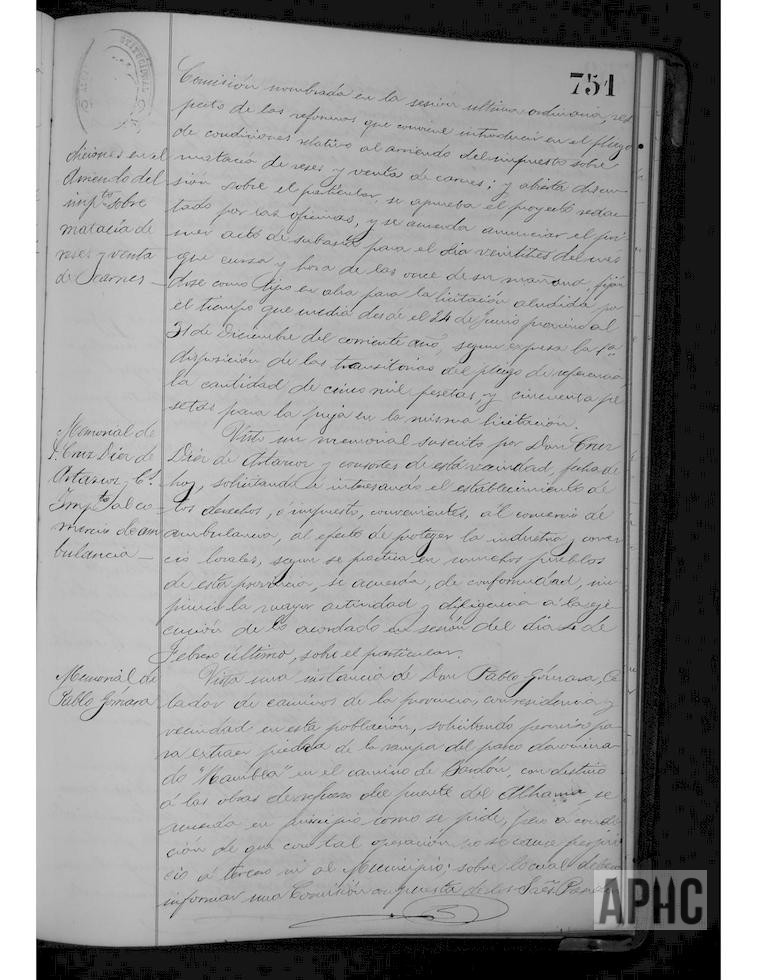 751
Comisión nombrada en la sesión última ordinaria, res
pecto de las reformas que conviene introducir en el pliego
de condiciones relativo al arriendo del impuesto sobre
matacía de reses y venta de carnes; y abierta discu-
sión sobre el particular, se aprueba el proyecto redac
tado por las oficinas, y se acuerda anunciar el pri
mer acto de subasta para el día veintitres del mes
que cursa y hora de las once de su mañana, fiján
dose como tipo en alza para la licitación aludida por
el tiempo que media desde el 24 de Junio proximo al
31 de Diciembre del corriente año, segun expresa la 1ª
disposición de las transitorias del pliego de referencia,
la cantidad de cinco mil pesetas, y cincuenta pe
setas para la puja en la misma licitación.
diciones en el
Arriendo del
impto sobre
matacía de
reses y venta
de carnes —
Visto un memorial suscrito por Don Cruz
Dior de Artazcoz y consortes de esta vecindad, fecha de
hoy, solicitando e interesando el establecimiento de
los derechos, o impuesto, convenientes, al comercio de
ambulancia, al efecto de proteger la industria y comer
cio locales, segun se practica en muchos pueblos
de esta provincia, se acuerda, de conformidad, im
primir la mayor actividad y diligencia á la eje
cución de lo acordado en sesión del dia 4 de
Febrero último, sobre el particular.
Memorial de
D. Cruz Dior de
Artazcoz y Cs
Impto al co
mercio de am
bulancia —
Vista una instancia de Don Pablo Gómara, Ce
lador de caminos de la provincia, con residencia y
vecindad en esta población, solicitando permiso pa
ra extraer piedra de la rampa del paseo denomina
do "Rambla" en el camino de Bardón, con destino
á las obras de refuerzo del puente del Alhama, se
acuerda en principio como se pide, pero a condi
ción de que con tal operación no se cause perjui
cio á tercero ni al Municipio; sobre lo cual deberá
informar una Comisión compuesta de los Sres.
Memorial de
Pablo Gómara
APHC